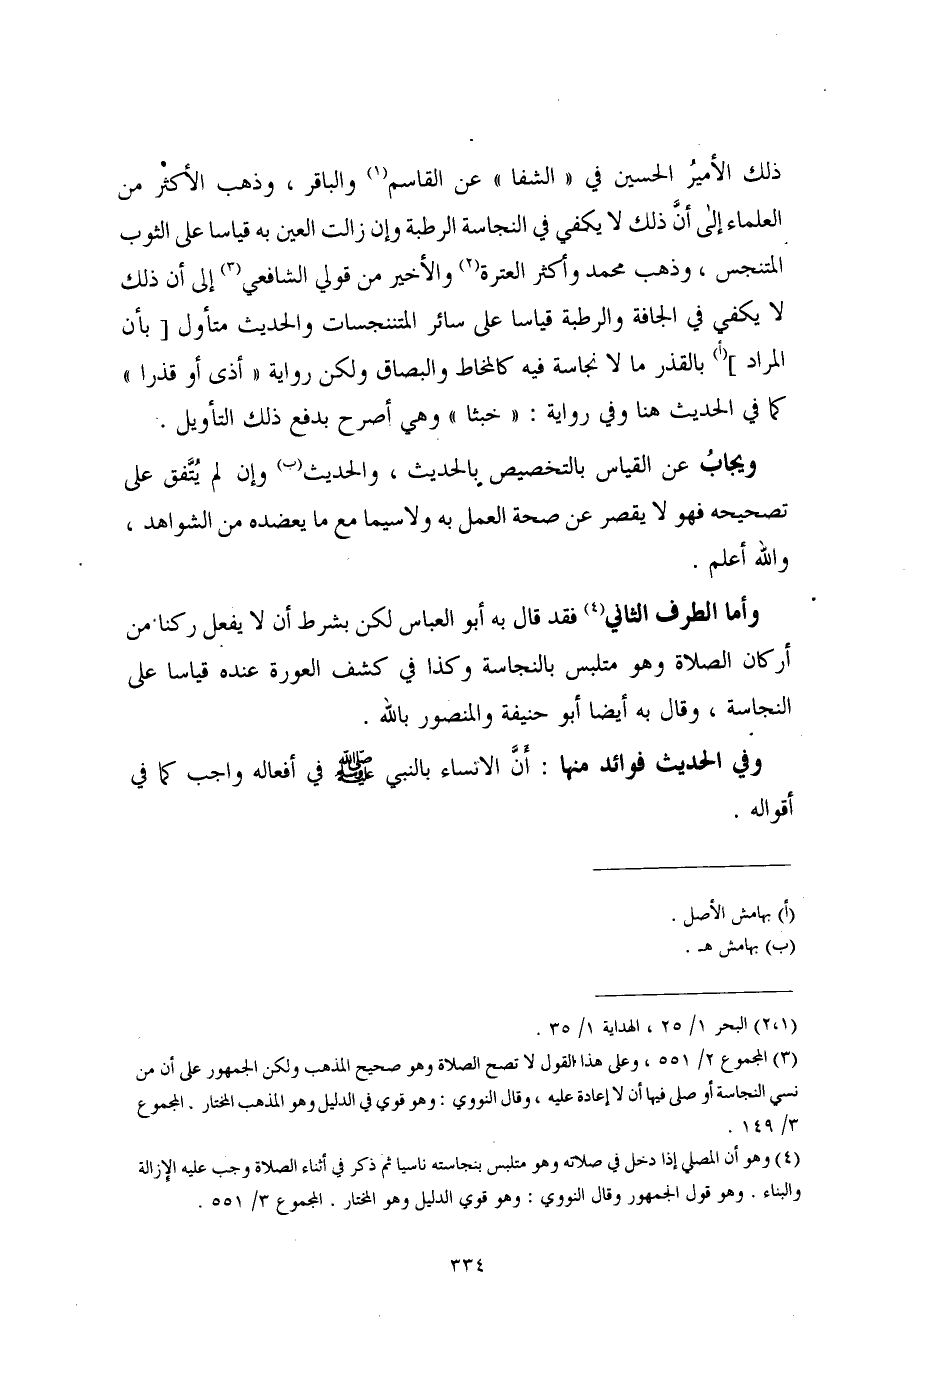 ذلك الأميرُ الحسين في « الشفا » عن القاسم(١) والباقر ، وذهب الأكثر من
العلماء إلى أنَّ ذلك لا يكفي في النجاسة الرطبة وإن زالت العين به قياسا على الثوب
المتنجس ، وذهب محمد وأكثر العترة(٢) والأخير من قولي الشافعي(٣) إلى أن ذلك
لا يكفي في الجافة والرطبة قياسا على سائر المتنجسات والحديث متأول [ بأن
المراد ](أ) بالقذر ما لا نجاسة فيه كالمخاط والبصاق ولكن رواية « أذى أو قذرا »
كما في الحديث هنا وفي رواية : « خبثا » وهي أصرح بدفع ذلك التأويل .
ويجابُ عن القياس بالتخصيص بالحديث ، والحديث(ب) وإن لم يُتَّفق على
تصحيحه فهو لا يقصر عن صحة العمل به ولاسيما مع ما يعضده من الشواهد ،
والله أعلم .
وأما الطرف الثاني(٤) فقد قال به أبو العباس لكن بشرط أن لا يفعل ركنا من
أركان الصلاة وهو متلبس بالنجاسة وكذا في كشف العورة عنده قياسا على
النجاسة ، وقال به أيضا أبو حنيفة والمنصور بالله .
وفي الحديث فوائد منها : أَنَّ الاتساء بالنبي ﷺ في أفعاله واجب كما في
أقواله .
(أ) بهامش الأصل .
(ب) بهامش هـ .
(٢،١) البحر ١/ ٢٥ ، الهداية ١/ ٣٥ .
(٣) المجموع ٢/ ٥٥١ ، وعلى هذا القول لا تصح الصلاة وهو صحيح المذهب ولكن الجمهور على أن من
نسي النجاسة أو صلى فيها أن لا إعادة عليه ، وقال النووي : وهو قوي في الدليل وهو المذهب المختار . المجموع
٣/ ١٤٩ .
(٤) وهو أن المصلي إذا دخل في صلاته وهو متلبس بنجاسته ناسيا ثم ذكر في أثناء الصلاة وجب عليه الإزالة
والبناء . وهو قول الجمهور وقال النووي : وهو قوي الدليل وهو المختار . المجموع ٣/ ٥٥١ .
٣٣٤